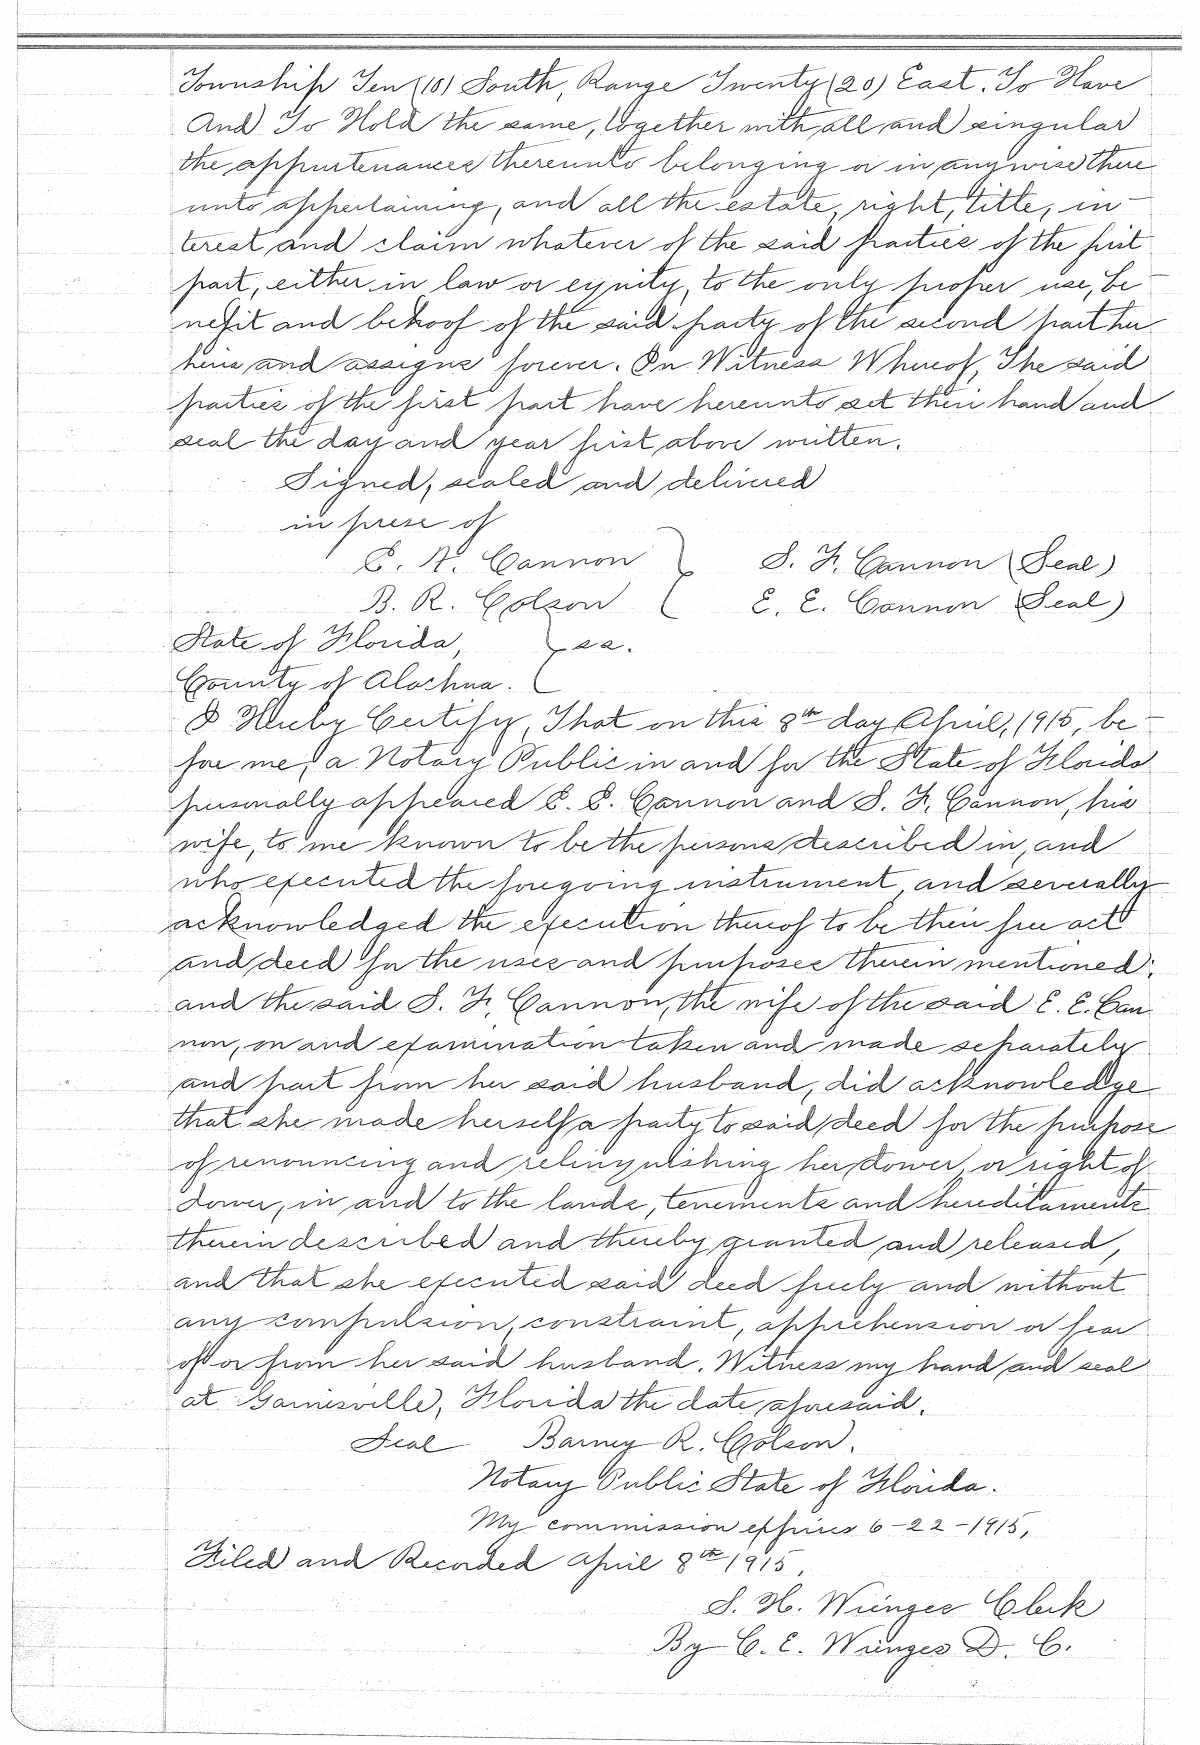 Township Ten (10) South, Range Twenty (20) East. To Have
And To Hold the same, together with all and singular
the appurtenances thereunto belonging or in anywise there
unto appertaining, and all the estate, right, title, in-
terest and claim whatever of the said parties of the first
part, either in law or equity, to the only proper use, be-
nefit and behoof of the said party of the second part her
heirs and assigns forever. In Witness Whereof, The said
parties of the first part have hereunto set their hand and
seal the day and year first above written.
Signed, sealed and delivered
in prese of
E. A. Cannon } S. F. Cannon (Seal)
B. R. Colson E. E. Cannon (Seal)
State of Florida, } ss.
County of Alachua.
I Hereby Certify, That on this 8th day April, 1915, be-
fore me, a Notary Public in and for the State of Florida
personally appeared E. E. Cannon and S. F. Cannon, his
wife, to me known to be the persons described in, and
who executed the foregoing instrument, and severally
acknowledged the execution thereof to be their free act
and deed for the uses and purposes therein mentioned;
and the said S. F. Cannon, the wife of the said E. E. Can
non, on and examination taken and made separately
and part from her said husband, did acknowledge
that she made herself a party to said deed for the purpose
of renouncing and relinquishing her dower, or right of
dower, in and to the lands, tenements and hereditaments
therein described and thereby granted and released,
and that she executed said deed freely and without
any compulsion, constraint, apprehension or fear
of or from her said husband. Witness my hand and seal
at Gainesville, Florida the date aforesaid.
Seal Barney R. Colson.
Notary Public State of Florida.
My commission expires 6-22-1915,
Filed and Recorded April 8th 1915,
S. H. Wienges Clerk
By C. E. Wienges D. C.